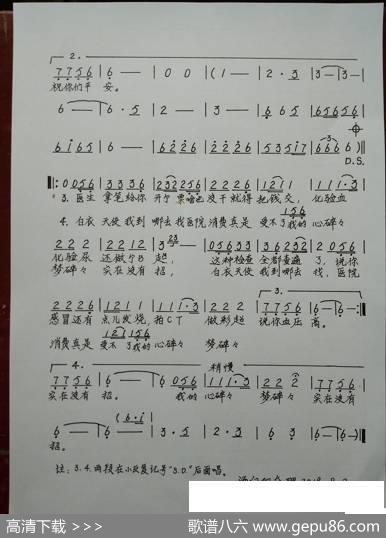 2.
7 7 5 6 | 6 — | 0 0 | (1 — | 2 · 3 | 3 — | 3 — |
祝你们平安。
6 — | 6 · 5 | 2 — | 3 — | 6 6 5 | 6 5 6 5 6
6 i 6 5 | 6 — | 6 2 2 6 | 2 2 2 6 | 5 3 5 i 7 | 6 6 6 6) ‖
D.S.
‖: 0 0 5 6 | 3 3 3 6 | 2 3 2 2 5 6 | 2 2 2 6 | 1 2 1 1 | 1 1 1 · 3 |
3. 医生 拿笔给你 开了 票 没干就得 把钱交, 化验血
1 5 6
4. 白衣 天使 我到 哪去 找 医院 消费真是 受不了我的 心碎々
2 2 2 | 2 2 1 2 | 3 — | 0 5 6 3 3 | 3 6 2 3 2 | 2 0 5 6 |
化验尿 还做个B 超, 这种检查 全都查遍 了, 说你
梦碎々 实在没有 招, 白衣 天使 我到哪去 找, 医院
3.
2 2 2 6 | 1 2 1 1 | 1 1 1 · 3 | 2 2 2 | 7 7 5 6 | 6 — | 6 — :‖
感冒还有 点儿发烧, 拍CT 做彩超 说你血压 高。
消费真是 受不了我的 心碎々 梦碎々
4. 稍慢
7 7 5 6 | 6 — | 6 0 5 6 | 1 1 1 · 3 | 2 2 2 | 7 7 5 6 |
实在没有 招。 我的 心碎々 梦碎々 实在没有
(6 · i)
6 — | 6 — | 3 · 5 | 2 · 3 | 6 3 | 6 — | 6 —) ‖
招。
注: 3. 4. 两段在小反复记号"S.D."后面唱。
高清下载 >>>
歌谱八六 www.gepu86.com
www.gepu86.com